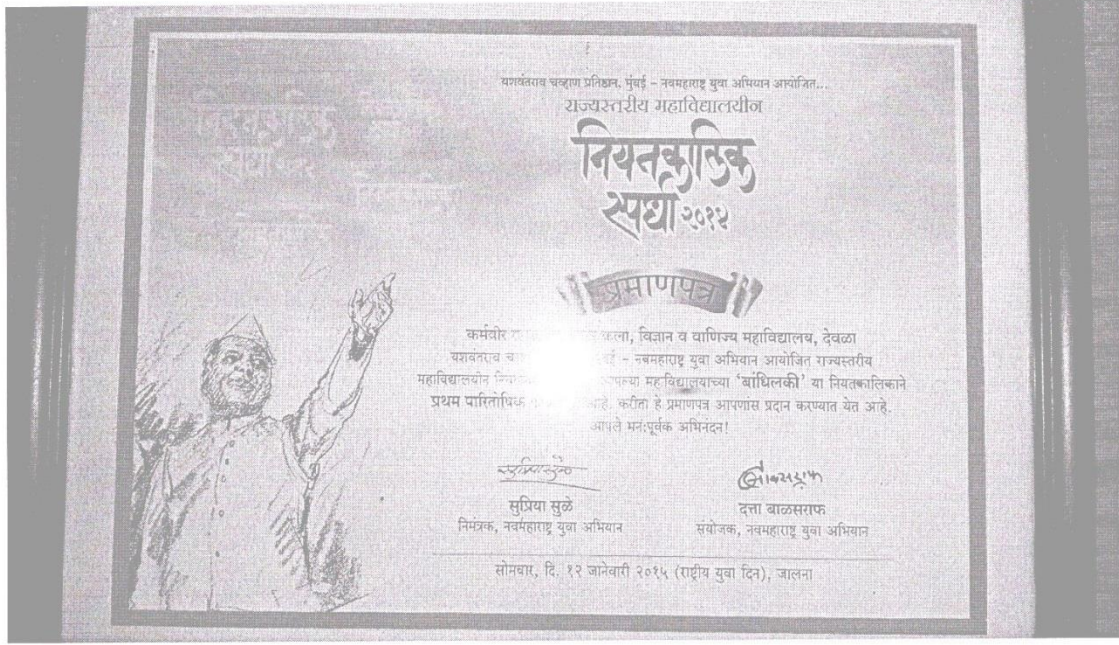 यशवंतराव चव्हाण प्रतिष्ठान, मुंबई – नवमहाराष्ट्र युवा अभियान आयोजित...
राज्यस्तरीय महाविद्यालयीन
नियतकालिक
स्पर्धा २०१४
प्रमाणपत्र
कर्मवीर कला, विज्ञान व वाणिज्य महाविद्यालय, देवळा
यशवंतराव – नवमहाराष्ट्र युवा अभियान आयोजित राज्यस्तरीय
महाविद्यालयीन महाविद्यालयाच्या 'बांधिलकी' या नियतकालिकाने
प्रथम पारितोषिक आहे. करीता हे प्रमाणपत्र आपणांस प्रदान करण्यात येत आहे.
आपले मनःपूर्वक अभिनंदन!
सुप्रिया सुळे
दत्ता बाळसराफ
निमंत्रक, नवमहाराष्ट्र युवा अभियान
संयोजक, नवमहाराष्ट्र युवा अभियान
सोमवार, दि. १२ जानेवारी २०१५ (राष्ट्रीय युवा दिन), जालना